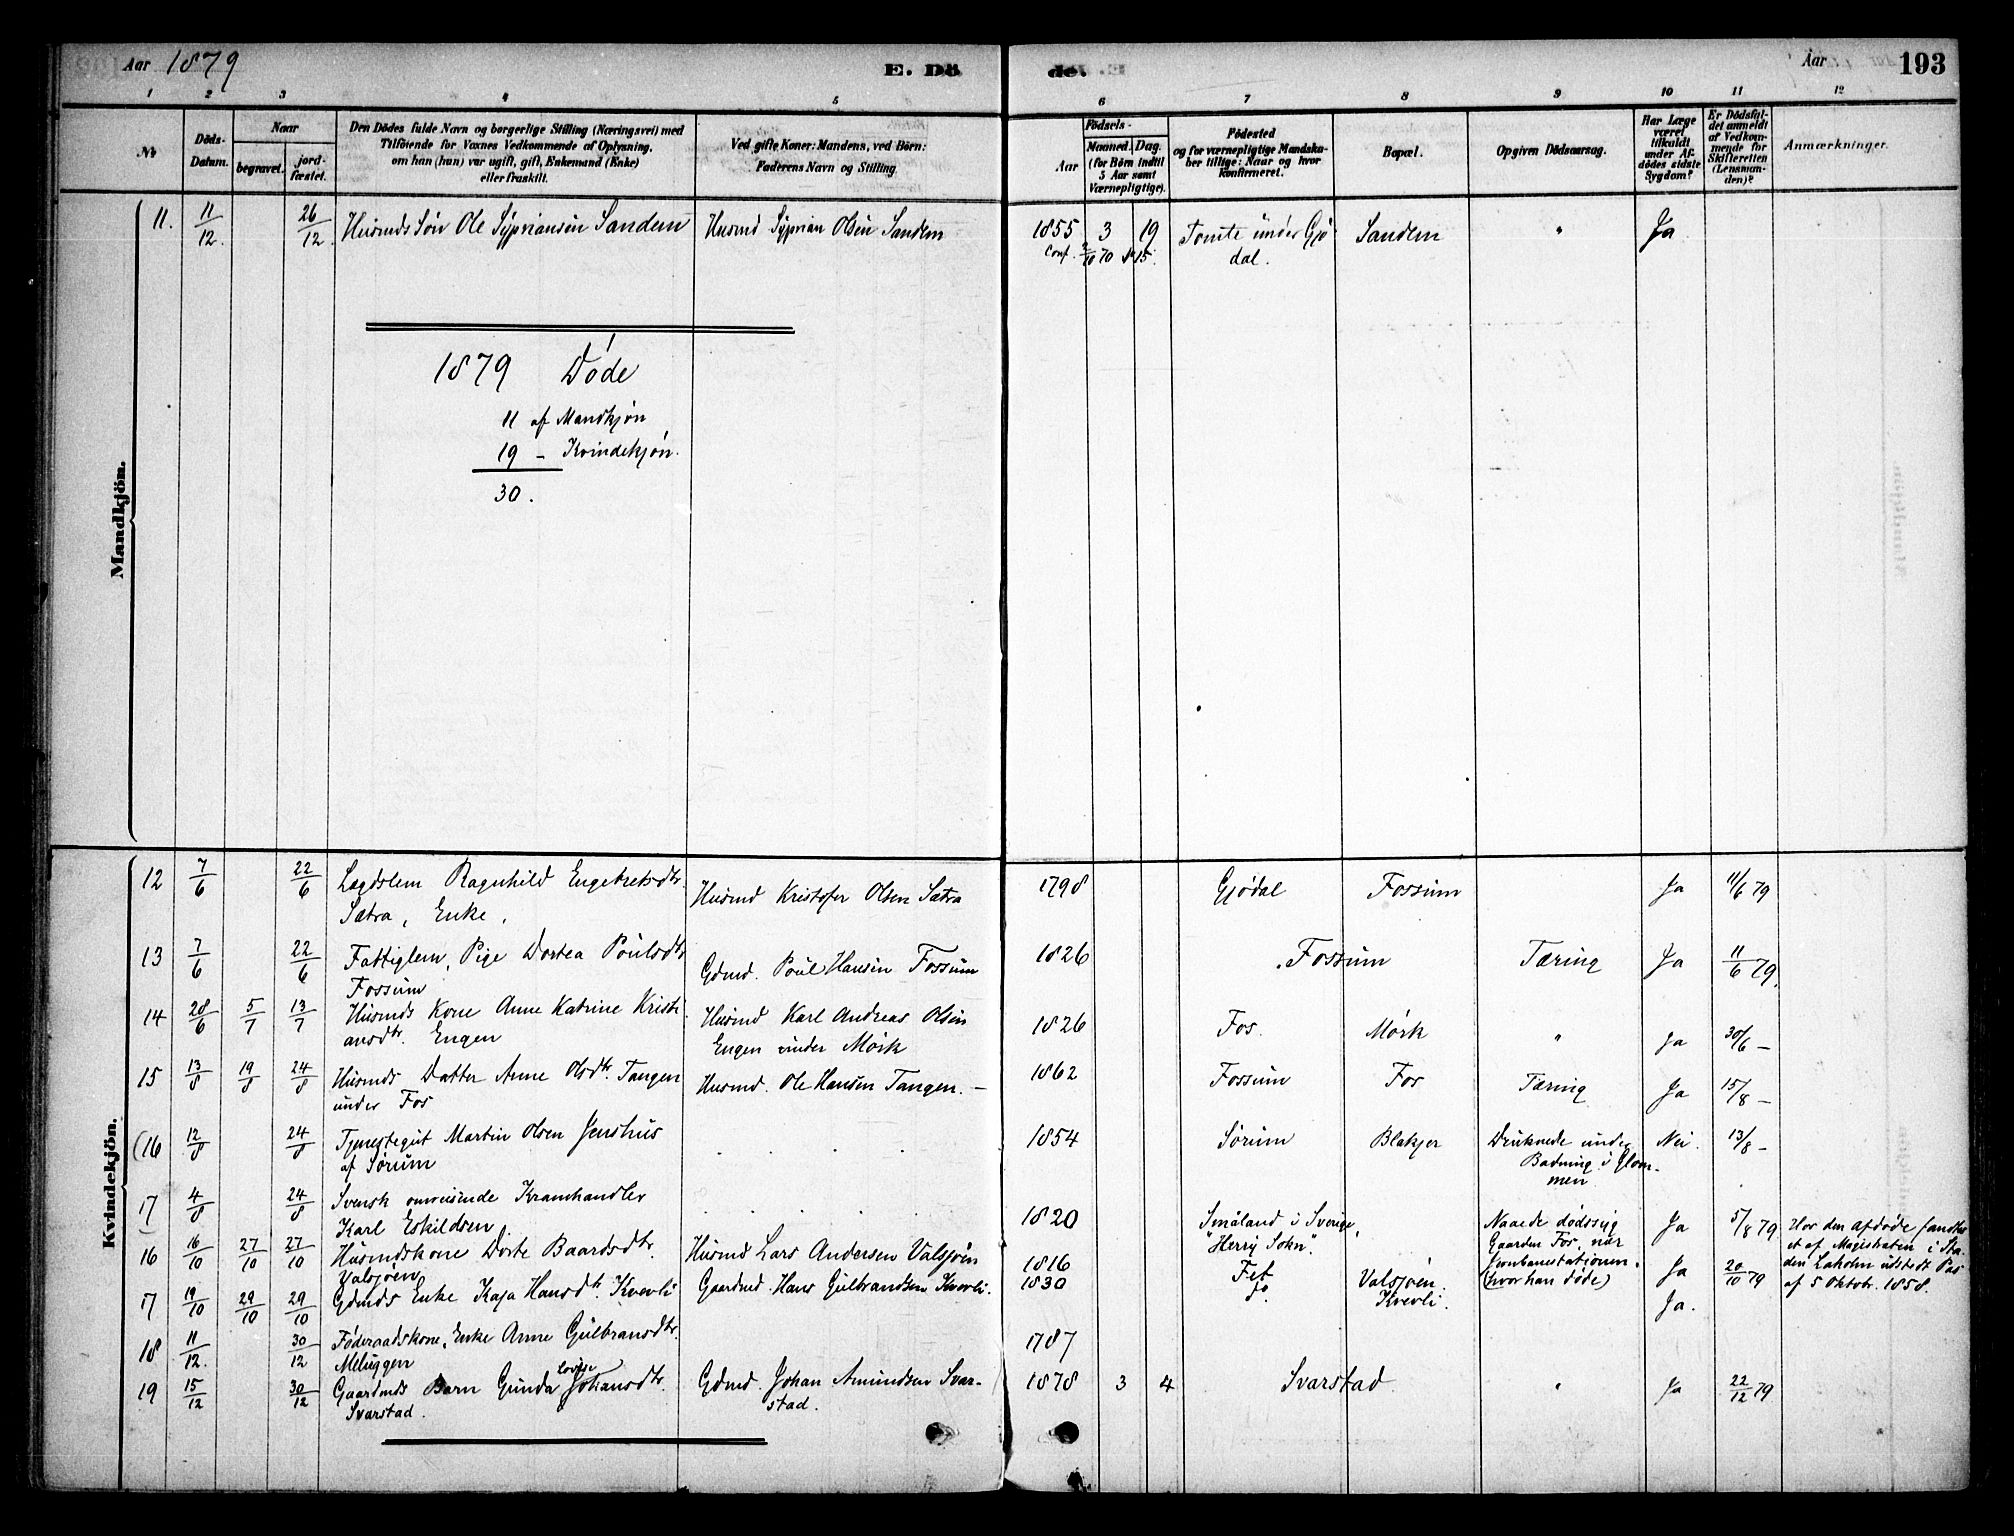 Aar 1879
E. Dö
de.
Aar
193
1 2 3 4 5 6 7 8 9 10 11 12
№
Döds-
Datum.
Naar
begravet.
jord-
fæstet.
Den Dödes fulde Navn og borgerlige Stilling (Næringsvei) med
Tilföiende for Voxnes Vedkommende af Oplysning,
om han (hun) var ugift, gift, Enkemand (Enke)
eller fraskilt.
Ved gifte Koner: Mandens, ved Börn:
Faderens Navn og Stilling
Födsels-
Aar
Maaned. Dag.
(for Börn indtil
5 Aar samt
Værnepligtige).
Födested
og for værnepligtige Mandska-
ber tillige: Naar og hvor
konfirmeret.
Bopæl.
Opgiven Dödsaarsag.
Har Læge
været
tilkaldt
under Af-
dödes sidste
Sygdom?
Er Dödsfal-
det anmeldt
af Vedkom-
mende for
Skifteretten
(Lensman-
den)?
Anmærkninger.
Mandkjön.
11. 11/12. 26/12. Husmds Søn Ole Sypriansen Sandem Husmd Syprian Olsen Sandem 1855 3 19 Tomte under Gjö Sandem " Ja
Conf. 2/10 70 № 15. dal.
1879 Døde
11 af Mandkjøn
19 - Kvindekjøn.
30.
Kvindekjön.
12 7/6 22/6 Lægdslem Ragnhild Engebretsdtr. Husmd Kristofer Olsen Sætra 1798 Gjödal Fossum Ja 11/6 79
Sætra, Enke,
13 7/6 22/6 Fattiglem, Pige Dortea Poulsdtr Gdmd. Poul Hansen Fossum 1826 Fossum Tæring Ja 11/6 79.
Fossum
14 28/6 5/7 13/7 Husmds Kone Anne Katrine Kristi Husmd Karl Andreas Olsen 1826 Fos. Mörk " Ja 30/6 –
ansdtr. Engen Engen under Mörk
15 13/8 19/8 24/8 Husmds Datter Anne Olsdtr. Tangen Husmd. Ole Hansen Tangen. – 1862 Fossum Fos Tæring Ja 15/8 –
under Fos
(16 12/8 24/8 Tjenestegut Martin Olsen Jenshus 1854 Sørum Blakjer Druknede under Nei. 13/8 –
af Sørum Badning i Glom-
men
17 4/8 24/8 Svensk omreisende Kramhandler 1820 Småland i Sverige, Naaede dødssyg Ja 5/8 79 Hos den afdøde fandtes
Karl Eskildsen "Herrj Sokn". Gaarden Fos, nær et af Magistraten i Sta-
Jernbanestationen. den Laholm udstedt Pas
(hvor han døde) af 5 Oktobr. 1858.
16 16/10 27/10 27/10 Husmdskone Dorte Baardsdtr. Husmd Lars Andersen Valsjøen 1816 Fet Valsjøen. Ja 20/10 79
Valsjøen
17 19/10 29/10 29/10 Gdmds Enke Kaja Hansdtr. Kvevli Gaardmd. Hans Gulbrandsen Kvevli. 1830 do Kvevli. Ja.
18 11/12. 30/12 Føderaadskone, Enke Anne Gulbransdtr. 1787
Meluggen
19 15/12 30/12 Gaardmds Barn Gunda Lovise Johansdtr. Gdmd. Johan Amundsen Svar- 1878 3 4 Svarstad " Ja 22/12 79
Svarstad. stad.